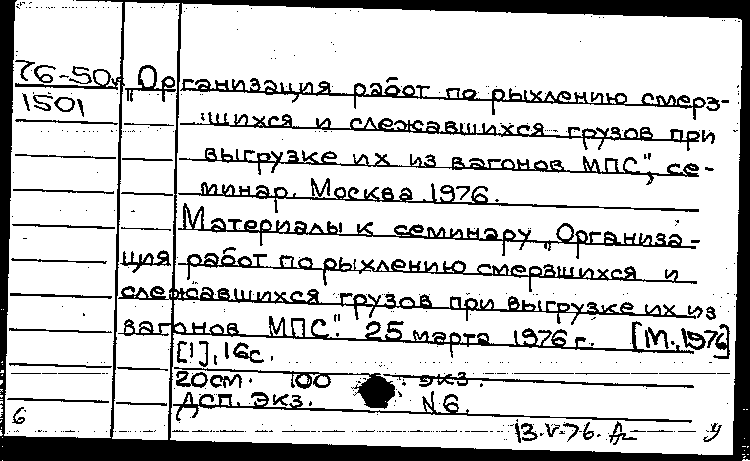 76-50и „Организация работ по рыхлению смерз-
1501
шихся и слежавшихся грузов при
выгрузке их из вагонов МПС", се-
минар. Москва 1976.
Материалы к семинару „Организа-
ция работ по рыхлению смерзшихся и
слежавшихся грузов при выгрузке их из
вагонов МПС". 25 марта 1976 г. [М., 1976]
[1], 16с.
20см. 100 экз.
ДСП. Экз. N6.
6 13.V-76.